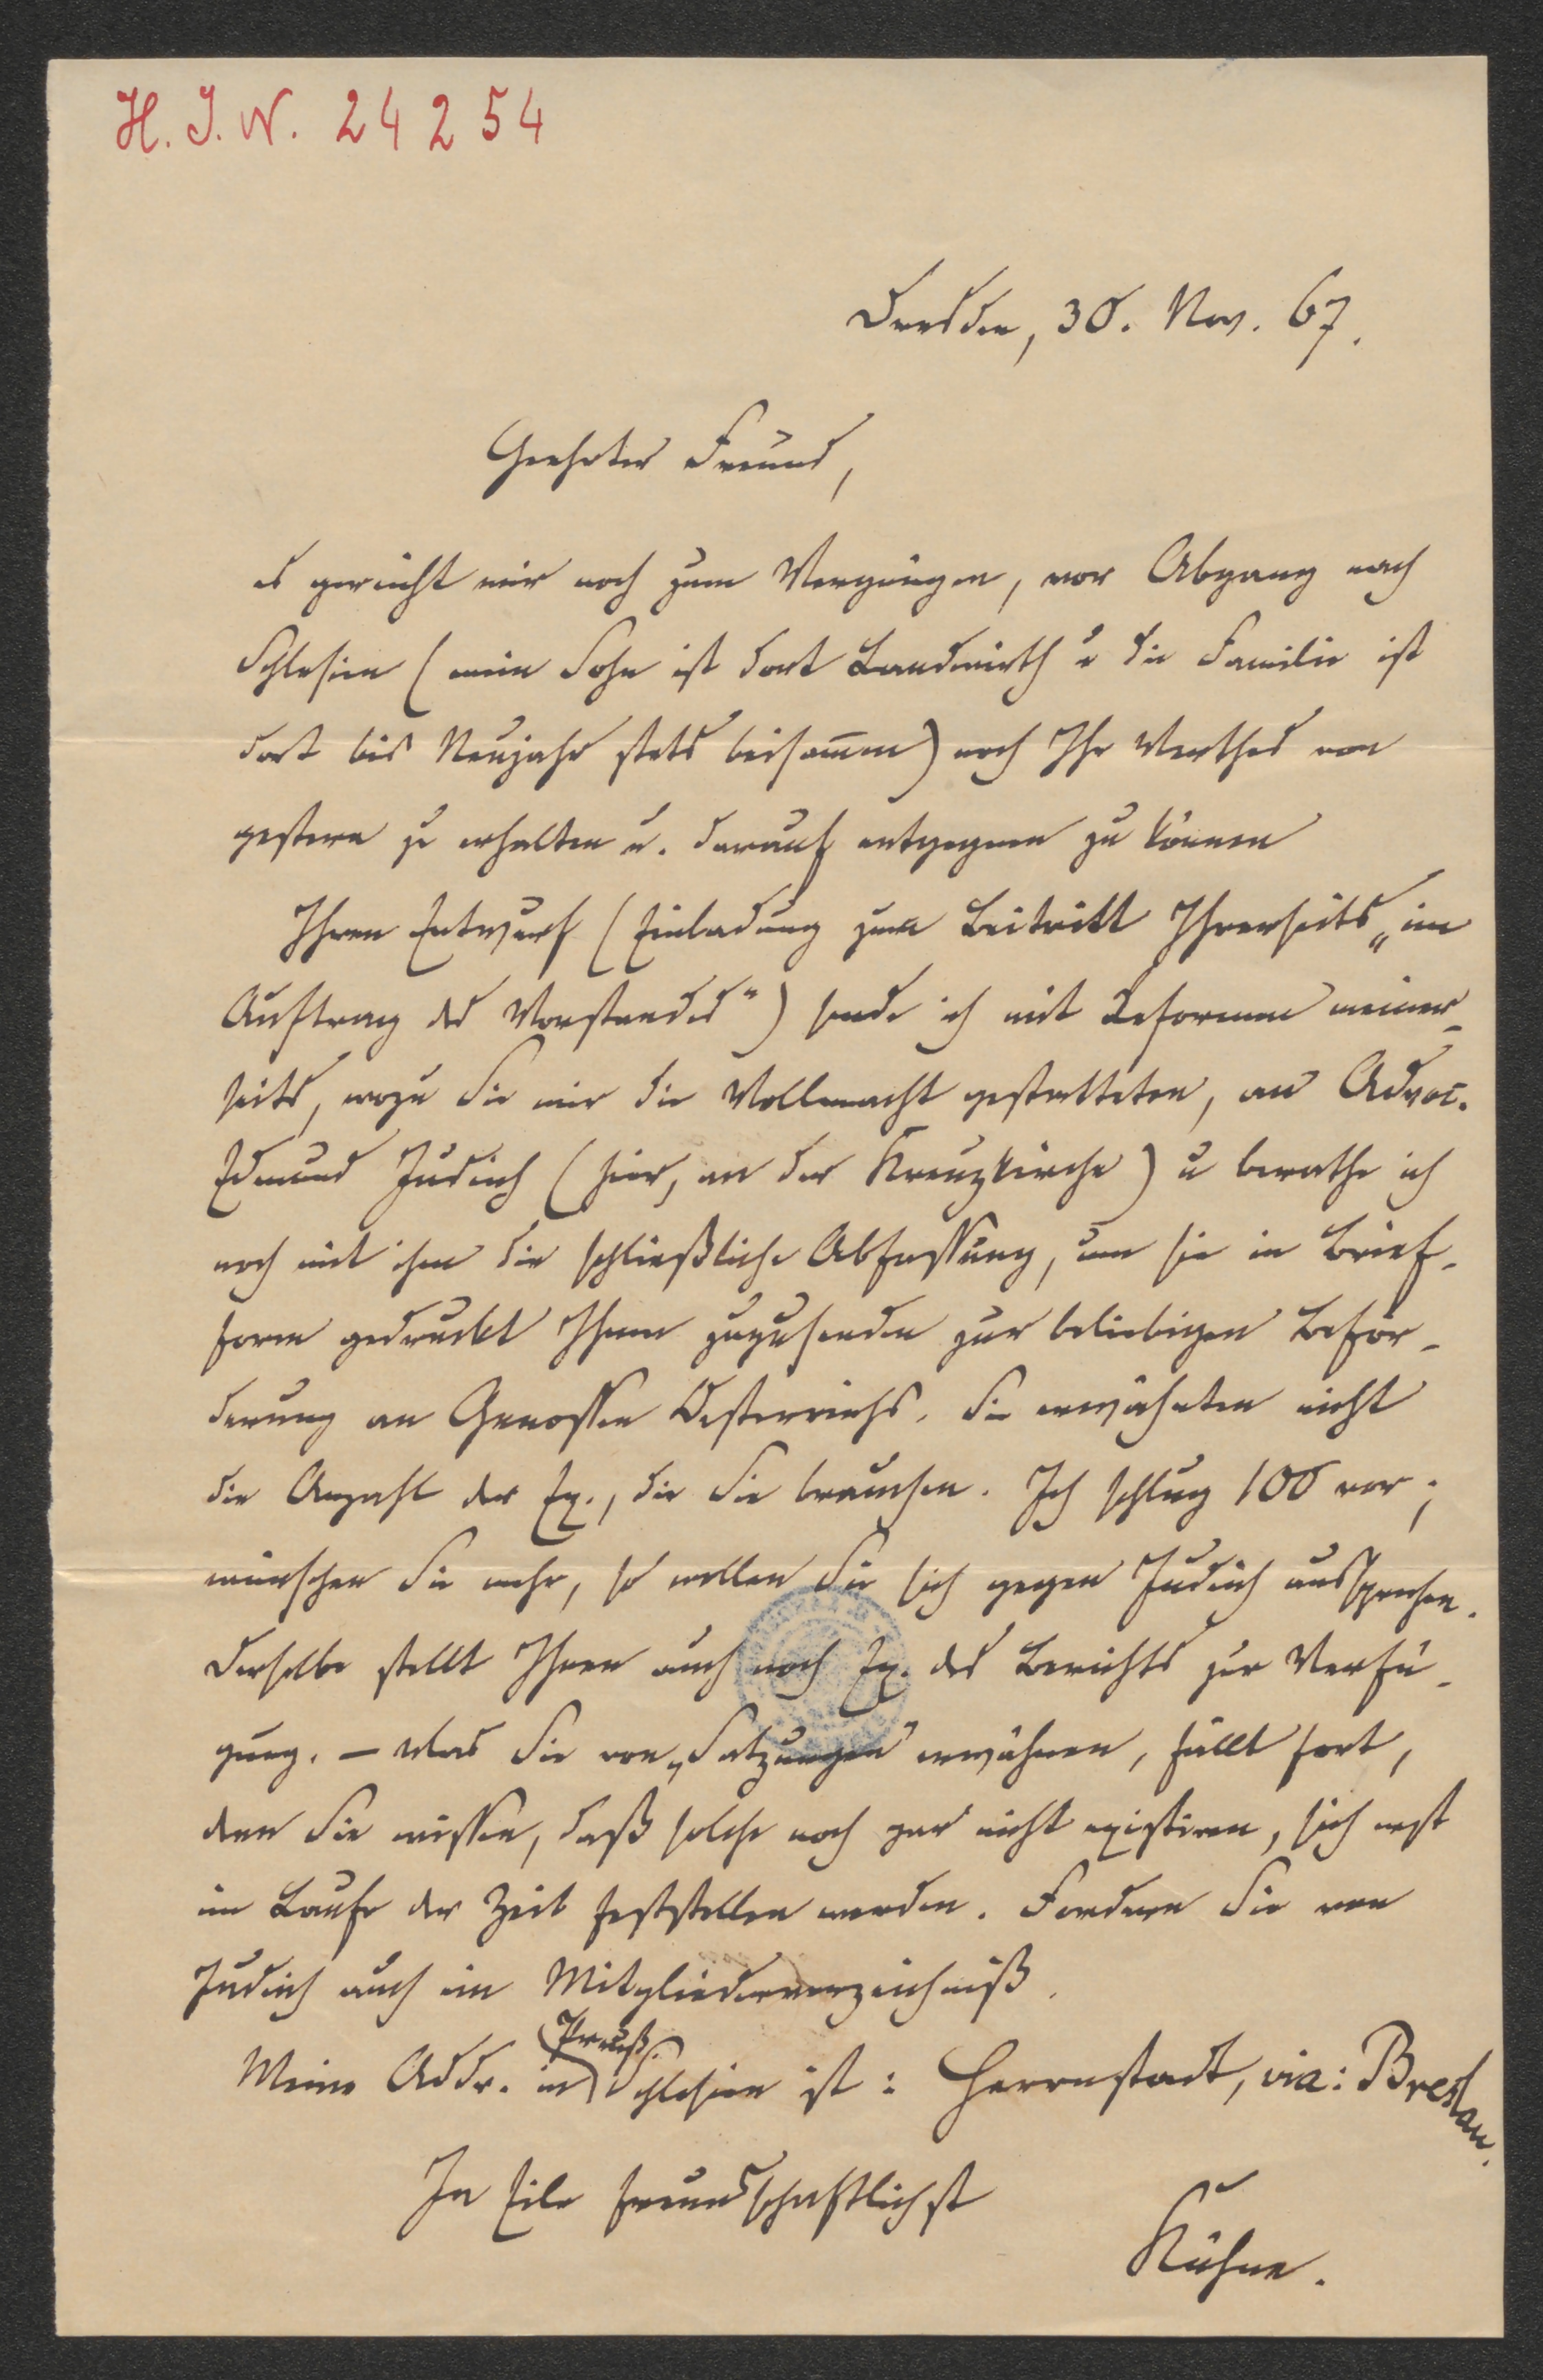 H. I. N. 24254
Dresden, 30. Nov. 67.
Geehrter Freund,
es gereicht mir noch zum Vergnügen, vor Abgang nach
Schlesien (mein Sohn ist dort Landwirth u die Familie ist
dort bis Neujahr stets beisam̄en) noch Ihr Werthes von
gestern zu erhalten u. darauf entgegnen zu können
Ihren Entwurf (Einladung zum Beitritt Ihrerseits „im
Auftrag des Vorstandes“) sende ich mit Reformen meiner-
seits, wozu Sie mir die Vollmacht gestatteten, an Advoc.
Edmund Judeich (hier, an der Kreuzkirche) u berathe ich
noch mit ihm die schließliche Abfassung, um sie in Brief-
form gedruckt Ihnen zuzusenden zur beliebigen Beför-
derung an Genossen Oesterreichs. Sie erwähnten nicht
die Anzahl der Ex., die Sie brauchen. Ich schlug 100 vor;
wünschen Sie mehr, so wollen Sie sich gegen Judeich aussprechen.
Derselbe stellt Ihnen auch noch Ex. des Berichts zur Verfü-
gung. – Was Sie von „Satzungen“ erwähnen, fällt fort,
denn Sie wissen, daß solche noch gar nicht existiren, sich erst
im Laufe der Zeit feststellen werden. Fordern Sie von
Judeich auch ein Mitgliederverzeichniß.
Preuß.
Meine Addr. in Schlesien ist: Herrnstadt, via: Breslau.
In Eile freundschaftlichst
Kühne.